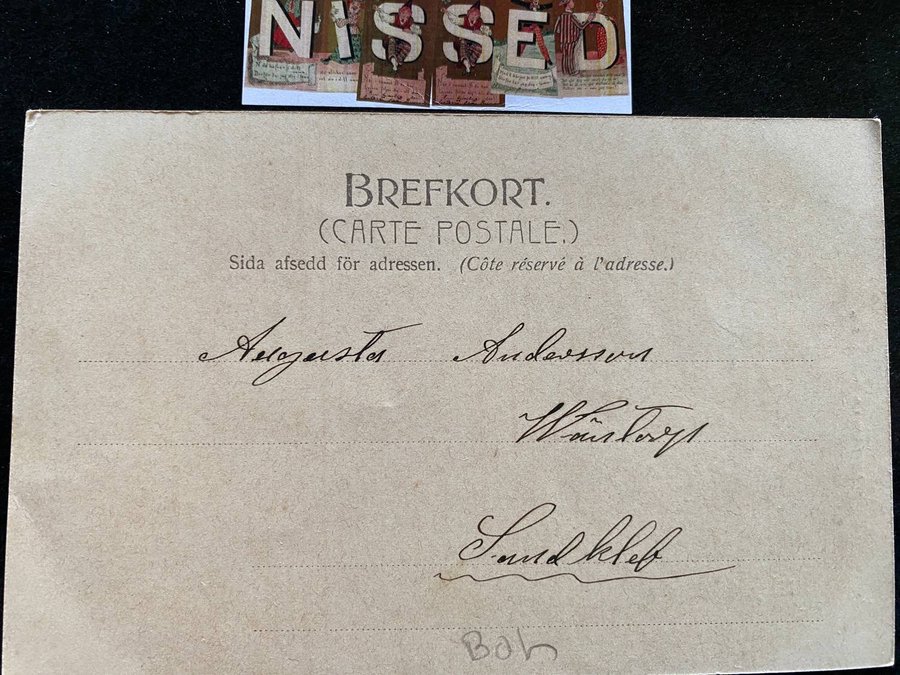 NISSED
BREFKORT.
(CARTE POSTALE.)
Sida afsedd för adressen. (Côte réservé à l'adresse.)
Augusta Andersson
Sandkleb
Boh